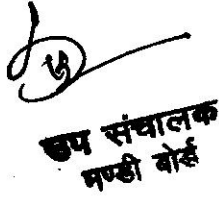 उप संचालक
मण्डी बोर्ड